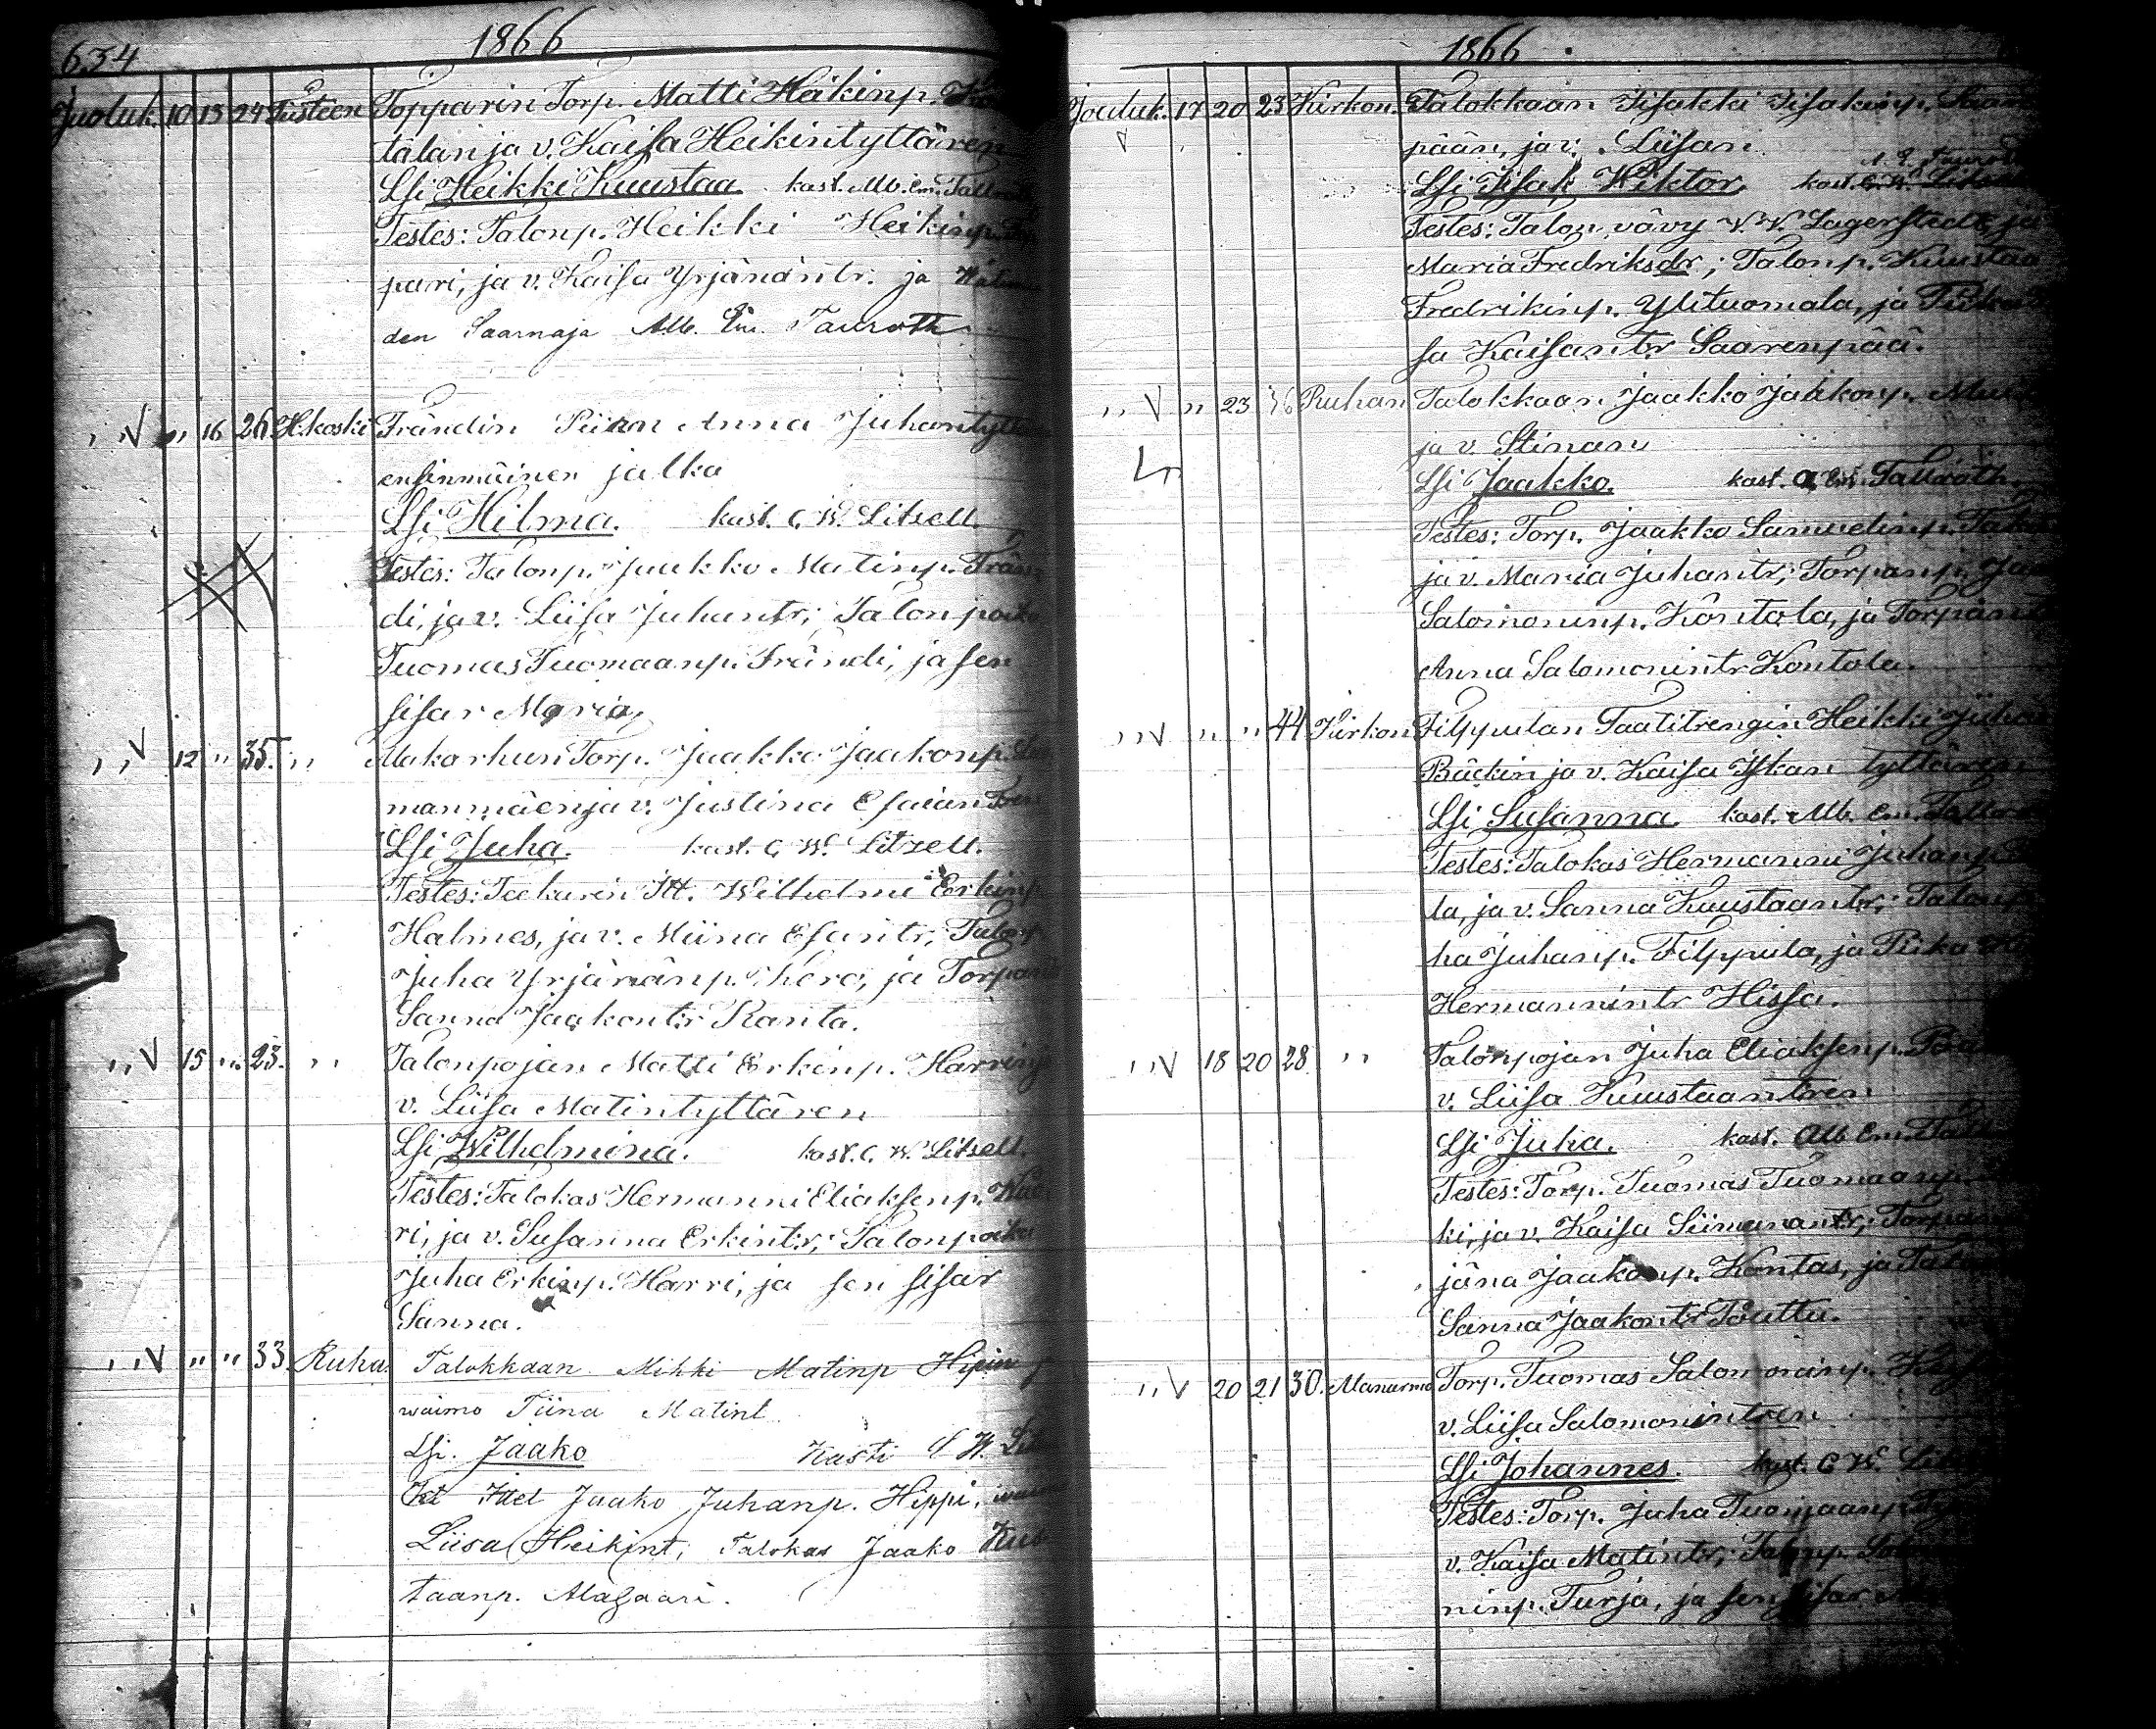 634
1866
Jouluk. 10 13 24 Tusteen Topparin Torp. Matti Heikinp.
talan ja v. Kaisa Heikintyttären
Lsi Heikki Kuustaa. kast. Alb. Em.
Testes: Talonp. Heikki Heikinp.
pari, ja v. Kaisa Yrjänäntr. ja
den Saarnaja Alb. Em. Tallroth.
" V " 16 26 H.koski Frändin Piian Anna Juhantyttären
ensinmäinen jalka
Lsi Hilma. kast. C. W. Litzell.
Testes: Talonp. Jaakko Matinp. Frän-
di, ja v. Liisa Juhantr; Talonpoika
Tuomas Tuomaanp. Frändi, ja sen
sisar Maria,
" V 12 " 35. " Torp. Jaakko Jaakonp.
manmäen ja v. Justina Esaian
Lsi Juha. kast. C. W. Litzell.
Testes: Itt. Wilhelmi Erkinp.
Halmes, ja v. Miina Esantr, Talonp.
Juha Yrjänänp. Kero, ja
Sanna Jaakontr Ranta.
" V 15 " 23. " Talonpojan Matti Erkinp. Harrin ja
v. Liisa Matintyttären
Lsi Wilhelmina. kast. C. W. Litzell.
Testes: Talokas Hermanni Eliaksenp.
ri, ja v. Susanna Erkintr, Talonpoika
Juha Erkinp. Harri, ja sen sisar
Sanna.
" V " " 33. Ruha. Talokkaan Mikki Matinp Hipin j
waimo Tiina Matint
Lsi. Jaako Kasti C W.
Itel Jaako Juhanp. Hippi,
Liisa Heikint; Talokas Jaako
taanp. Alasaari.
1866.
Jouluk. 17 20 23 Kirkon. Talokkaan Iisakki Iisakinp.
V pään, ja v. Liisan
Lsi Isak Wiktor. kast.
Testes: Talon vävy V. V. Lagerstedt, ja
Maria Fredriksdr; Talonp. Kuustaa
Fredrikinp. Ylituomala, ja
sa Kaisantr Saarenpää.
" V " 23 36 Ruhan Talokkaan Jaakko Jaakonp.
ja v. Stinan
Lsi Jaakko. kast. A. Em. Tallroth.
Testes: Torp. Jaakko Samuelinp.
ja v. Maria Juhantr; Torpanp.
Salomoninp. Kontola, ja
Anna Salomonintr Kontola.
" V " " 44 Kirkon Filppulan Taatitrengin Heikki
Bäckin ja v. Kaisa Iskan tyttären
Lsi Susanna. kast. Alb. Em.
Testes: Talokas Hermanni Juhanp.
la, ja v. Sanna Kuustaantr; Talonp.
ha Juhanp. Filppula, ja Piika
Hermannintr Hissa.
" V 18 20 28 " Talonpojan Juha Eliaksenp.
v. Liisa Kuustaantren
Lsi Juha. kast. Alb Em.
Testes: Torp. Tuomas Tuomaanp.
ki, ja v. Kaisa Siimunantr;
jänä Jaakonp. Kontas, ja
Sanna Jaakontr Pouttu.
" V 20 21 30. Torp. Tuomas Salomoninp.
v. Liisa Salomonintren
Lsi Johannes. kast. C W.
Testes: Torp. Juha Tuomaanp.
v. Kaisa Matintr; Talonp.
ninp. Turja, ja sen sisar